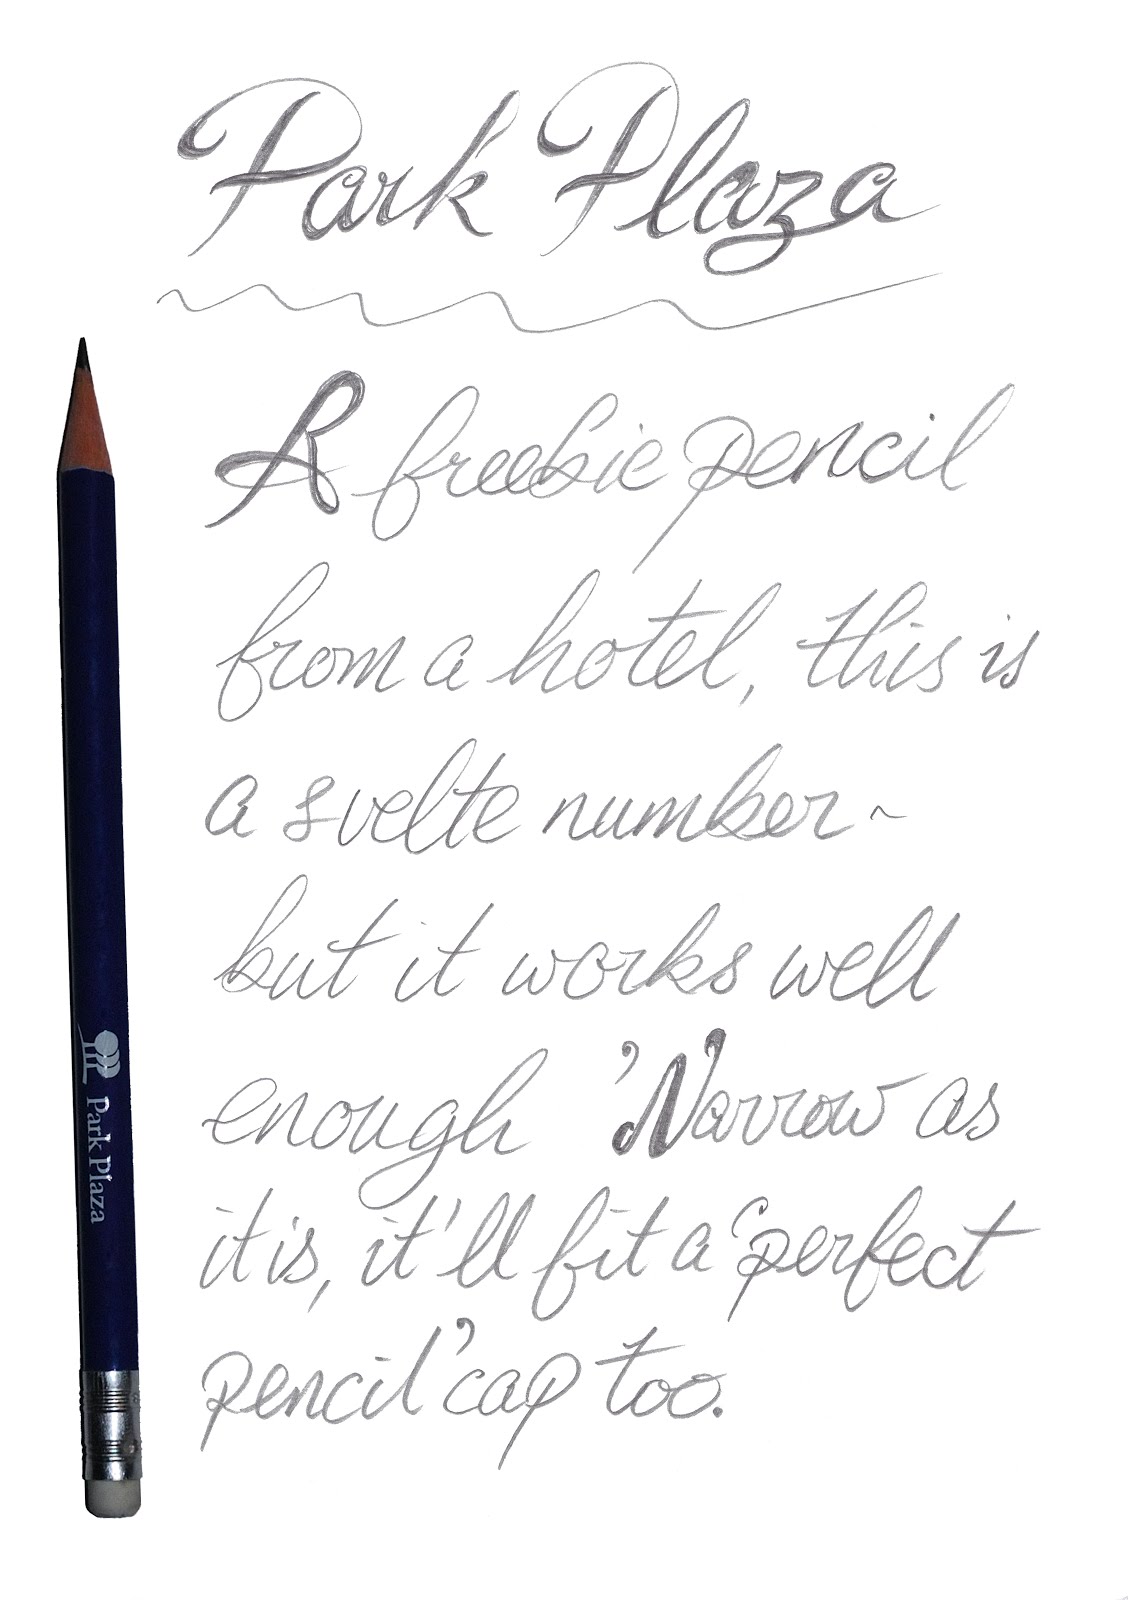 Park Plaza
A freebie pencil
from a hotel, this is
a svelte number ~
but it works well
enough 'Narrow as
it is, it'll fit a 'perfect
pencil' cap too.
Park Plaza